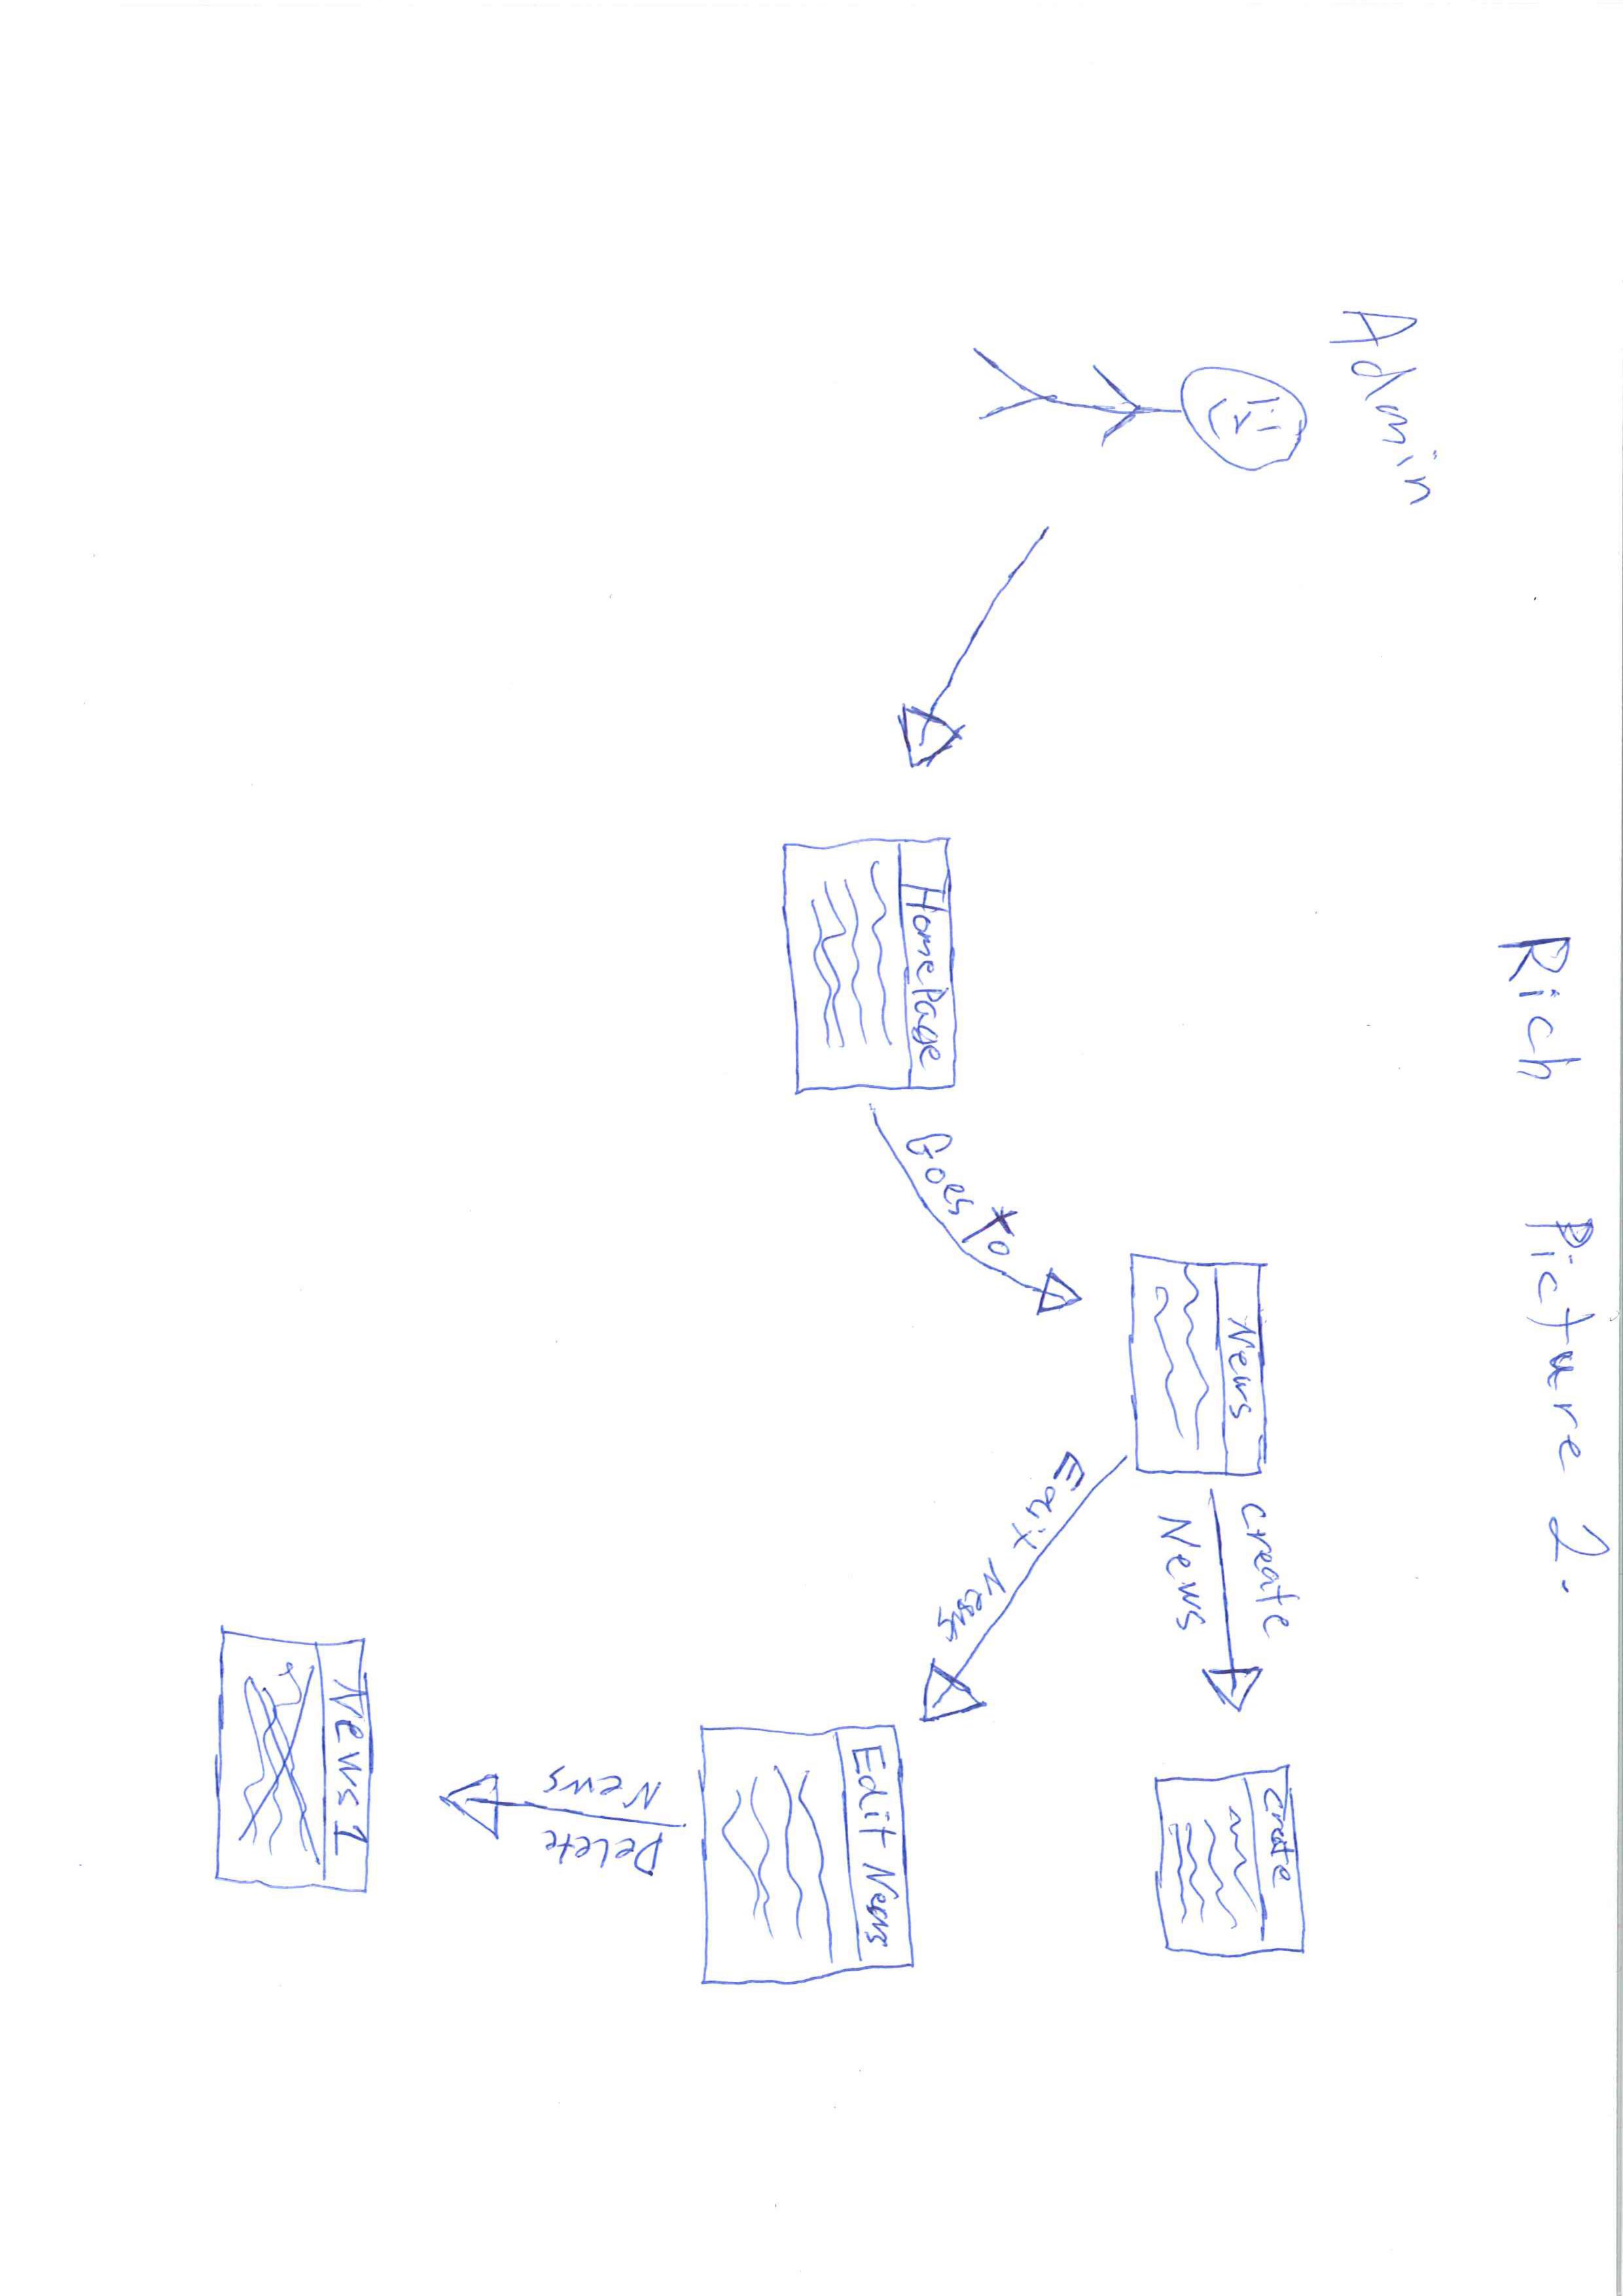 Rich Picture 2.
Admin
HomePage
Goes To
News
create
News
create
Edit News
Edit News
Delete
News
News 1